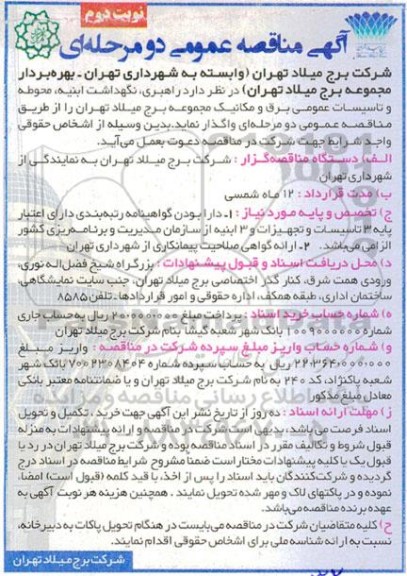 نوبت دوم
آگهی مناقصه عمومی دو مرحله‌ای
شرکت برج میلاد تهران (وابسته به شهرداری تهران ـ بهره‌بردار
مجموعه برج میلاد تهران) در نظر دارد راهبری، نگهداشت ابنیه، محوطه
و تاسیسات عمومی برق و مکانیک مجموعه برج میلاد تهران را از طریق
مناقصه عمومی دو مرحله‌ای واگذار نماید. بدین وسیله از اشخاص حقوقی
واجد شرایط جهت شرکت در مناقصه دعوت بعمل می‌آید.
الف) دستگاه مناقصه‌گزار : شرکت برج میلاد تهران به نمایندگی از
شهرداری تهران
ب) مدت قرارداد : ۱۲ ماه شمسی
ج) تخصص و پایه مورد نیاز : ۱ـ دارا بودن گواهینامه رتبه‌بندی دارای اعتبار
پایه ۳ تاسیسات و تجهیزات و ۳ ابنیه از سازمان مدیریت و برنامه‌ریزی کشور
الزامی می‌باشد. ۲ـ ارائه گواهی صلاحیت پیمانکاری از شهرداری تهران
د) محل دریافت اسناد و قبول پیشنهادات : بزرگراه شیخ فضل‌اله نوری،
ورودی همت شرق، کنار گذر اختصاصی برج میلاد تهران، جنب سایت نمایشگاهی،
ساختمان اداری، طبقه همکف، اداره حقوقی و امور قراردادها ـ تلفن ۸۵۸۵
ه) شماره حساب خرید اسناد : پرداخت مبلغ ۲/۰۰۰/۰۰۰ ریال به حساب جاری
شماره ۱۰۰۹۰۰۰۰۰۰۰ بانک شهر شعبه گیشا بنام شرکت برج میلاد تهران
و) شماره حساب واریز مبلغ سپرده شرکت در مناقصه : واریز مبلغ
ریال به حساب سپرده شماره ۷۰۰۲۳۰۸۴۰۴ بانک شهر
شعبه پاکنژاد، کد ۲۴۰ به نام شرکت برج میلاد تهران و یا ضمانتنامه معتبر بانکی
معادل مبلغ مذکور
ز) مهلت ارائه اسناد : ده روز از تاریخ نشر این آگهی جهت خرید، تکمیل و تحویل
اسناد فرصت می‌باشد، بدیهی است شرکت در مناقصه و ارائه پیشنهادات به منزله
قبول شروط و تکالیف مقرر در اسناد مناقصه بوده و شرکت برج میلاد تهران در رد یا
قبول یک یا کلیه پیشنهادات مختار است ضمناً مشروح شرایط مناقصه در اسناد درج
گردیده و شرکت‌کنندگان باید اسناد را پس از اخذ، با قید کلمه (قبول است) امضاء
نموده و در پاکتهای لاک و مهر شده تحویل نمایند. همچنین هزینه هر نوبت آگهی به
عهده برنده مناقصه می‌باشد.
ح) کلیه متقاضیان شرکت در مناقصه می‌بایست در هنگام تحویل پاکات به دبیرخانه،
نسبت به ارائه شناسه ملی برای اشخاص حقوقی اقدام نمایند.
شرکت برج میلاد تهران